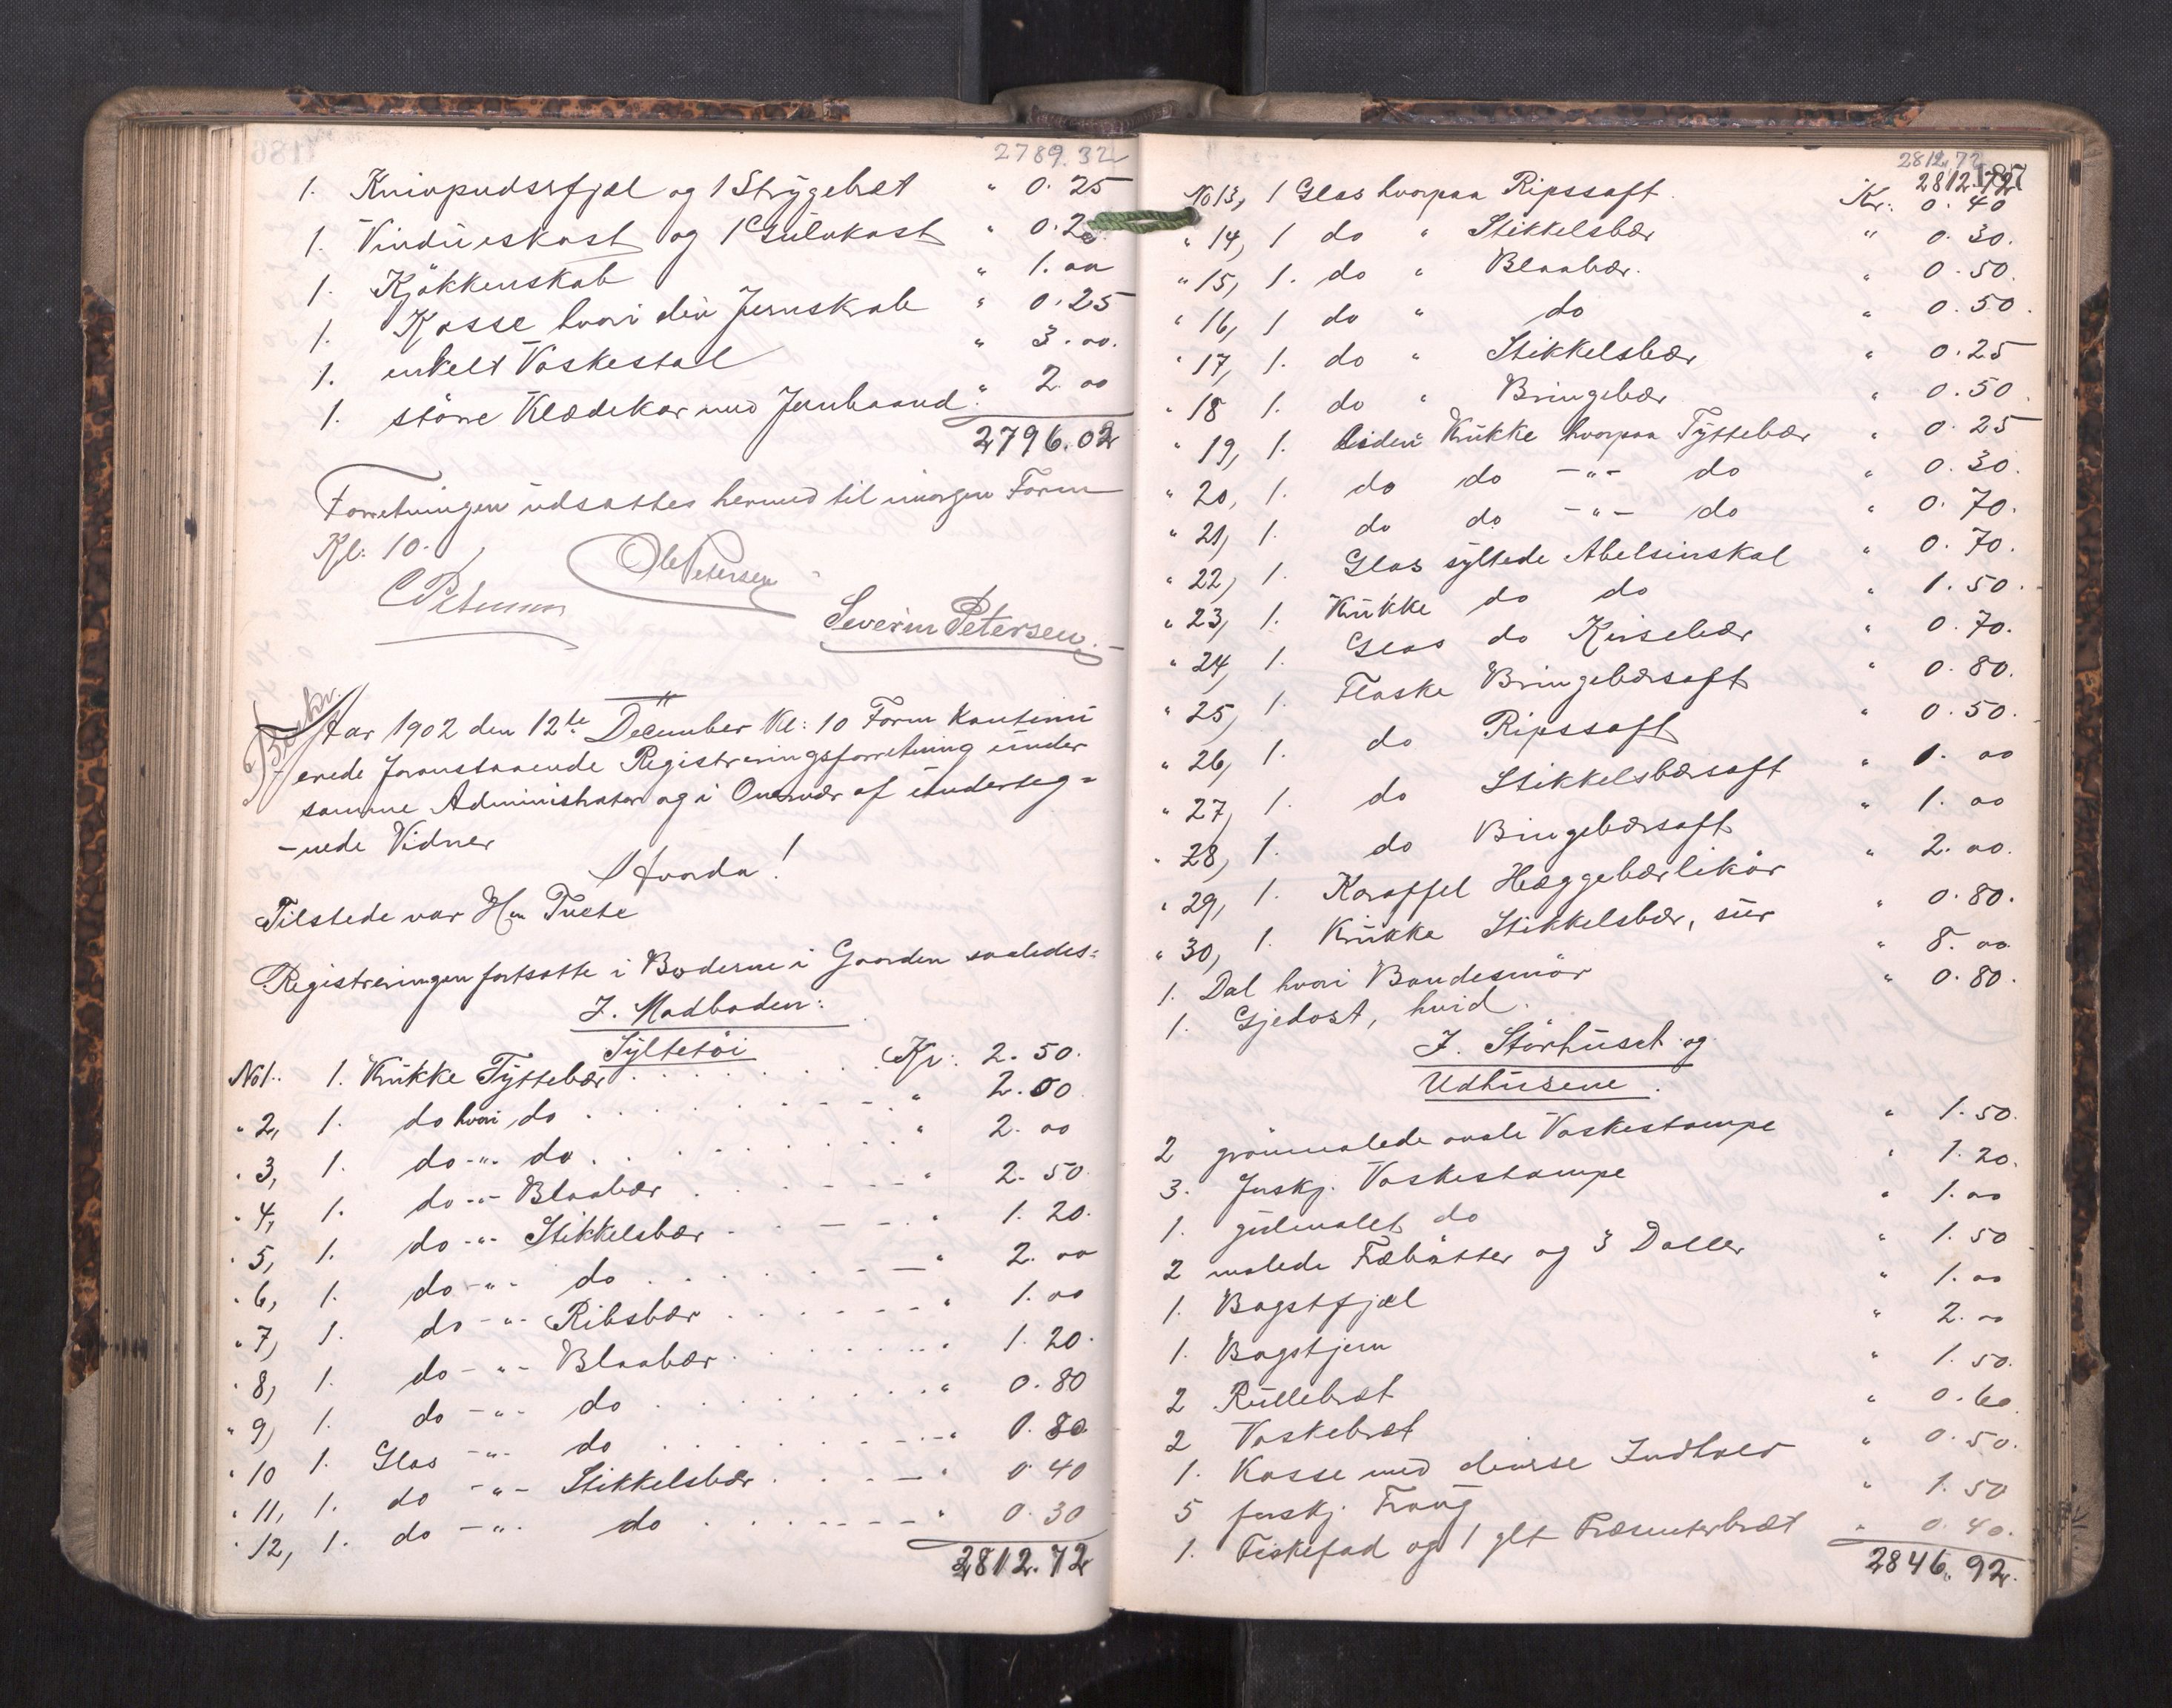 2789.32
1. Knivpudserfjæl og 1 Strygebræt " 0.25
1. Vindueskost og 1 Gulvkost " 0.2
1. Kjøkkenskab " 1.00
1. Kasse hvori div Jernskrab " 0.25
1. enkelt Vaskestal " 3.00.
1. større Klædekar med Jernbaand " 2.00
2796.02
Forretningen udsattes hermed til imorgen Form
Kl: 10.
Ole Petersen
C Petersen
Severin Petersen.
Aar 1902 den 12te December Kl: 10 Form kontinu
erede foranstaaende Registreringsforretning under
samme Administrator og i Overvær af underteg=
-nede Vidner
Hvorda!
Tilstede var Hr Tvete
Registreringen fortsatte i Boderne i Gaarden saaledes:
I. Madboden:
Syltetøi
No 1. 1. Krukke Tyttebær Kr: 2.50.
" 2, 1. do hvori do " 2.00
" 3, 1. do -"- do " 2.00
" 4, 1. do -"- Blaabær " 2.50
" 5, 1. do -"- Stikkelsbær " 1.20.
" 6, 1. do -"- do " 2.00
" 7, 1. do -"- Ribsbær " 1.00
" 8, 1. do -"- Blaabær " 1.20.
" 9, 1. do -"- do " 0.80
" 10 1. Glas -"- do " 0.80
" 11, 1. do -"- Stikkelsbær " 0.40
" 12, 1. do -"- do " 0.30
2812.72
2812.72
187
2812.72
No 13, 1 Glas hvorpaa Ripssaft Kr: 0.40
" 14, 1 do " Stikkelsbær " 0.30.
" 15, 1. do " Blaabær. " 0.50.
" 16, 1 do " do " 0.50.
" 17, 1. do " Stikkelsbær " 0.25
" 18 1. do " Bringebær " 0.50.
" 19, 1. liden Krukke hvorpaa Tyttebær " 0.25
" 20, 1. do do -"- do " 0.30.
" 21, 1. do do -"- do " 0.70.
" 22, 1. Glas syltede Abelsinskal " 0.70.
" 23, 1. Krukke do do " 1.50.
" 24, 1. Glas do Kirsebær " 0.70.
" 25, 1. Flaske Bringebærsaft " 0.80.
" 26, 1. do Ripssaft " 0.50.
" 27, 1. do Stikkelsbærsaft " 1.00
" 28, 1. do Bringebærsaft " 1.00
" 29, 1. Karaffel Hæggebærlikør " 2.00.
" 30, 1. Krukke Stikkelsbær, sur " 0.80.
1. Dal hvori Bondesmør " 8.00
1. Gjedost, hvid. " 0.80.
I. Störhuset og
Udhusene.
2 grønmalede ovale Vaskestampe " 1.50.
3. forskj. Vaskestampe " 1.20.
1. gulmalet do " 1.00
2 malede Træbøtter og 3 Daller " 1.50
1. Bagstfjæl " 1.00
1. Bagstjern " 2.00
2 Rullebræt " 1.50.
2 Vaskebræt " 0.60.
1. Kasse med diverse Indhold " 0.50.
5 forskj. Traug " 1.50
1. Fiskefad og 1 glt Præsenterbræt " 0.40.
2846.92.